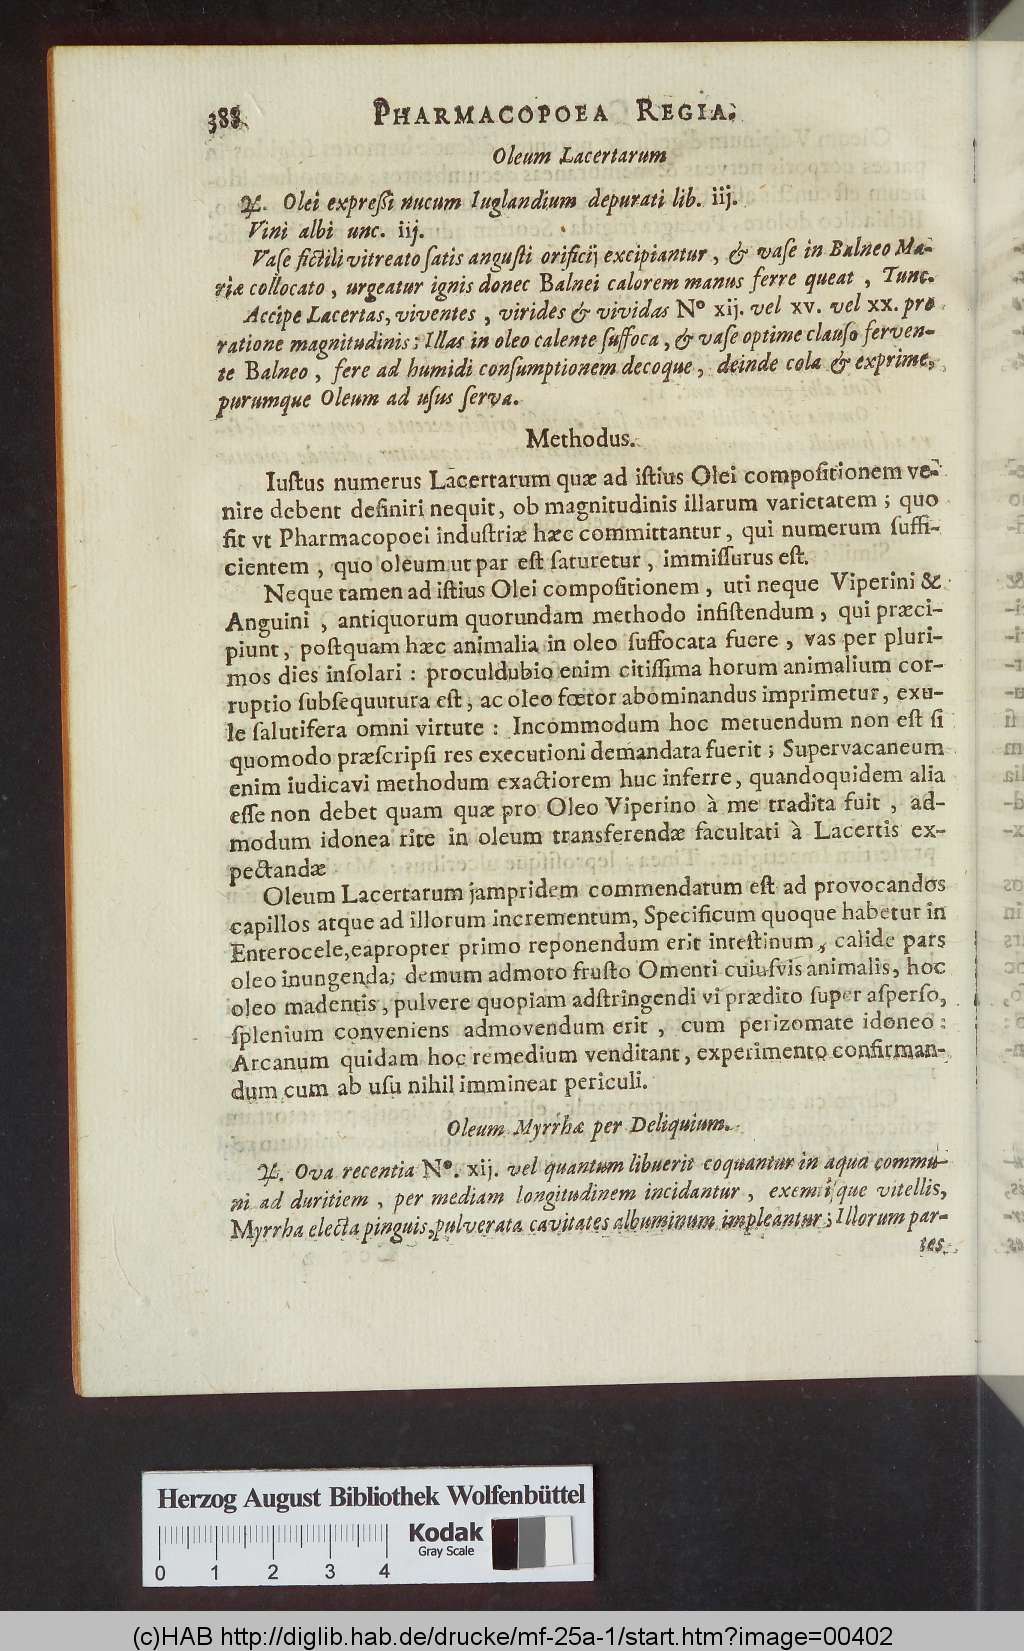 388 PHARMACOPOEA REGIA.
Oleum Lacertarum
♃. Olei expreſſi nucum Iuglandium depurati lib. iij.
Vini albi unc. iij.
Vaſe fictili vitreato ſatis anguſti orificij excipiantur, & vaſe in Balneo Ma-
riæ collocato, urgeatur ignis donec Balnei calorem manus ferre queat, Tunc.
Accipe Lacertas, viventes, virides & vividas Nº xij. vel xv. vel xx. pro
ratione magnitudinis: Illas in oleo calente ſuffoca, & vaſe optime clauſo ferven-
te Balneo, fere ad humidi conſumptionem decoque, deinde cola & exprime,
purumque Oleum ad uſus ſerva.
Methodus.
Iuſtus numerus Lacertarum quæ ad iſtius Olei compoſitionem ve-
nire debent definiri nequit, ob magnitudinis illarum varietatem; quo
fit vt Pharmacopoei induſtriæ hæc committantur, qui numerum ſuffi-
cientem, quo oleum ut par eſt ſaturetur, immiſſurus eſt.
Neque tamen ad iſtius Olei compoſitionem, uti neque Viperini &
Anguini, antiquorum quorundam methodo inſiſtendum, qui præci-
piunt, poſtquam hæc animalia in oleo ſuffocata fuere, vas per pluri-
mos dies inſolari: proculdubio enim citiſſima horum animalium cor-
ruptio ſubſequutura eſt, ac oleo fœtor abominandus imprimetur, exu-
le ſalutifera omni virtute: Incommodum hoc metuendum non eſt ſi
quomodo præſcripſi res executioni demandata fuerit; Supervacaneum
enim iudicavi methodum exactiorem huc inferre, quandoquidem alia
eſſe non debet quam quæ pro Oleo Viperino à me tradita fuit, ad-
modum idonea rite in oleum transferendæ facultati à Lacertis ex-
pectandæ
Oleum Lacertarum jampridem commendatum eſt ad provocandos
capillos atque ad illorum incrementum, Specificum quoque habetur in
Enterocele, eapropter primo reponendum erit inteſtinum, calide pars
oleo inungenda; demum admoto fruſto Omenti cuiuſvis animalis, hoc
oleo madentis, pulvere quopiam adſtringendi vi prædito ſuper aſperſo,
ſplenium conveniens admovendum erit, cum perizomate idoneo:
Arcanum quidam hoc remedium venditant, experimento confirman-
dum cum ab uſu nihil immineat periculi.
Oleum Myrrhæ per Deliquium.
♃. Ova recentia Nº. xij. vel quantum libuerit coquantur in aqua commu-
ni ad duritiem, per mediam longitudinem incidantur, exemtique vitellis,
Myrrha electa pinguis, pulverata cavitates albuminum impleantur; Illorum par-
tes
Herzog August Bibliothek Wolfenbüttel
Kodak
Gray Scale
0 1 2 3 4
(c)HAB http://diglib.hab.de/drucke/mf-25a-1/start.htm?image=00402